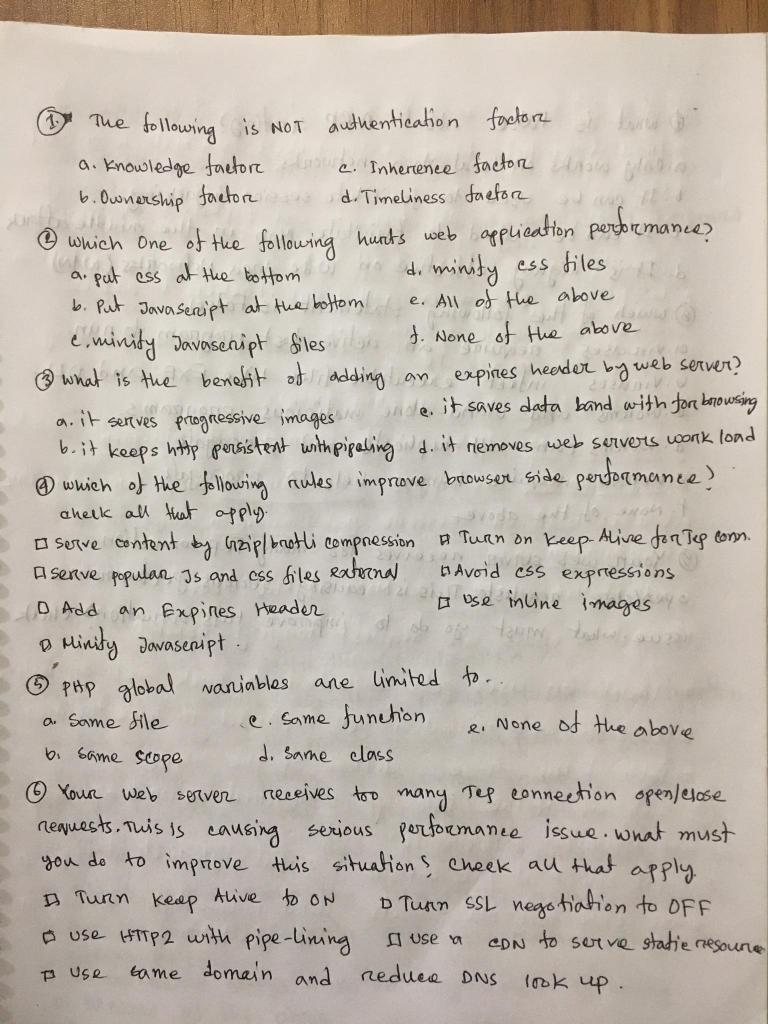 ① The following is NOT authentication factor
a. Knowledge factor c. Inherence factor
b. Ownership factor d. Timeliness factor
② which One of the following hurts web application performance?
a. put css at the bottom d. minify css files
b. Put Javascript at the bottom e. All of the above
c. minify Javascript files f. None of the above
③ what is the benefit of adding an expires header by web server?
a. it serves progressive images c. it saves data band with for browsing
b. it keeps http persistent with pipeling d. it removes web servers work load
④ which of the following rules improve browser side performance?
check all that apply.
□ serve content by Gzip/brotli compression □ Turn on Keep-Alive for Tcp conn.
□ serve popular Js and css files external □ Avoid css expressions
□ Add an Expires Header □ Use inline images
□ Minify Javascript.
⑤ PHP global variables are limited to..
a. Same file c. Same function e. None of the above
b. Same scope d. Same class
⑥ Your web server receives too many Tcp connection open/close
requests. This is causing serious performance issue. what must
you do to improve this situation? check all that apply.
□ Turn Keep Alive to ON □ Turn SSL negotiation to OFF
□ use HTTP2 with pipe-lining □ use a CDN to serve static resource
□ Use same domain and reduce DNS look up.